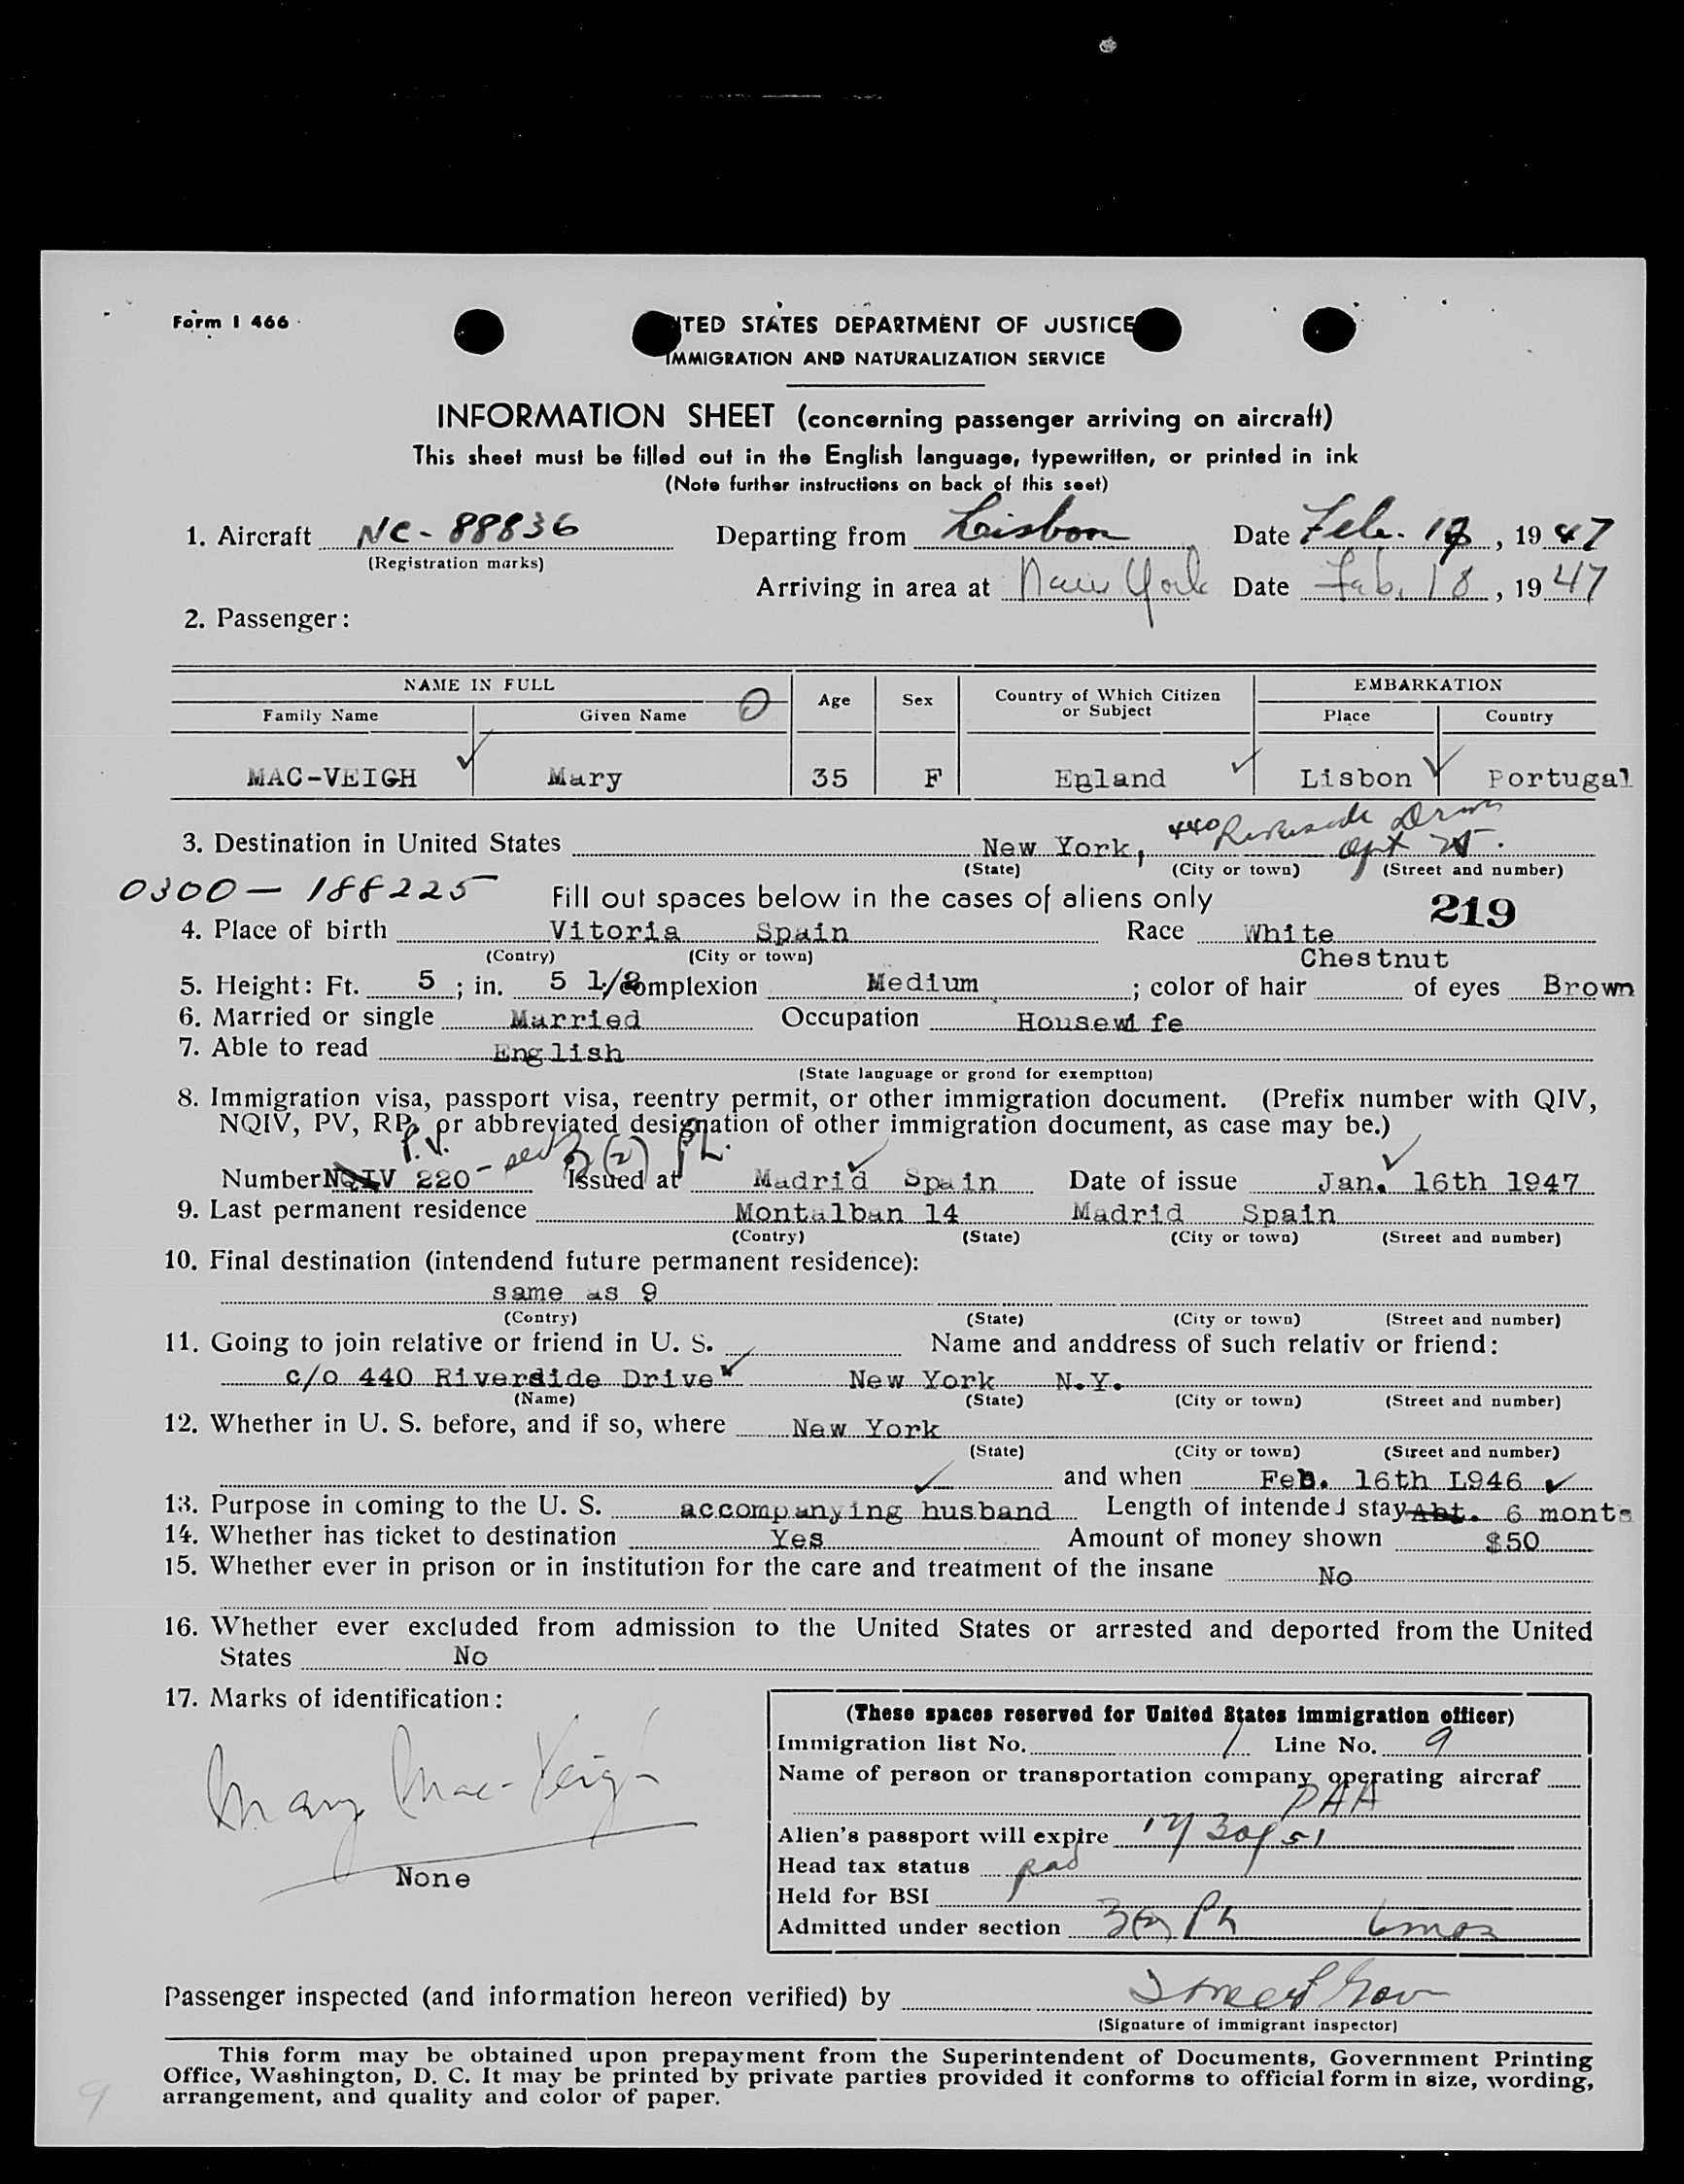 Form I 466
ITED STATES DEPARTMENT OF JUSTICE
IMMIGRATION AND NATURALIZATION SERVICE
INFORMATION SHEET (concerning passenger arriving on aircraft)
This sheet must be filled out in the English language, typewritten, or printed in ink
(Note further instructions on back of this seet)
1. Aircraft NC-88836 Departing from Lisbon Date Feb. , 1947
(Registration marks)
Arriving in area at New York Date Feb. 18, 1947
2. Passenger:
NAME IN FULL Age Sex Country of Which Citizen or Subject EMBARKATION
Family Name Given Name Place Country
MAC-VEIGH Mary 35 F England Lisbon Portugal
3. Destination in United States New York, 440 Riverside Drive Apt
(State) (City or town) (Street and number)
0300 - 188225 Fill out spaces below in the cases of aliens only 219
4. Place of birth Vitoria Spain Race White
(Contry) (City or town) Chestnut
5. Height: Ft. 5; in. 5 1/2 Complexion Medium; color of hair of eyes Brown
6. Married or single Married Occupation Housewi fe
7. Able to read English
(State language or grond for exemptton)
8. Immigration visa, passport visa, reentry permit, or other immigration document. (Prefix number with QIV,
NQIV, PV, RP, or abbreviated designation of other immigration document, as case may be.)
P.V. - sec 3 (2) Ph.
Number NQIV 220 Issued at Madrid Spain Date of issue Jan. 16th 1947
9. Last permanent residence Montalban 14 Madrid Spain
(Contry) (State) (City or town) (Street and number)
10. Final destination (intendend future permanent residence):
same as 9
(Contry) (State) (City or town) (Street and number)
11. Going to join relative or friend in U. S. Name and anddress of such relativ or friend:
c/o 440 Riverdide Drive New York N.Y.
(Name) (State) (City or town) (Street and number)
12. Whether in U. S. before, and if so, where New York
(State) (City or town) (Street and number)
and when Feb. 16th L946
13. Purpose in coming to the U. S. accompanying husband Length of intended stay Abt. 6 monts
14. Whether has ticket to destination Yes Amount of money shown $50
15. Whether ever in prison or in institution for the care and treatment of the insane No
16. Whether ever excluded from admission to the United States or arrested and deported from the United
States No
17. Marks of identification:
Mary Mac-Veigh
None
(These spaces reserved for United States immigration officer)
Immigration list No. 1 Line No. 9
Name of person or transportation company operating aircraf
PAA
Alien's passport will expire 30/51
Head tax status pad
Held for BSI
Admitted under section 3(2) Ph 6 mos
Passenger inspected (and information hereon verified) by
(Signature of immigrant inspector)
This form may be obtained upon prepayment from the Superintendent of Documents, Government Printing
Office, Washington, D. C. It may be printed by private parties provided it conforms to official form in size, wording,
arrangement, and quality and color of paper.
9